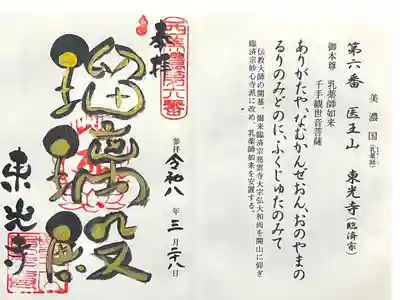 美濃国
第六番 医王山 東光寺(臨済宗)
(乳薬師)
御本尊 乳薬師如来
千手観世音菩薩
ありがたや、なむかんぜおん、おのやまの
るりのみどのに、ふくじゅたのみて
伝教大師の開基。爾来臨済宗慈雲寺大宗弘大和尚を開山に仰ぎ
臨済宗妙心寺派に改め、乳薬師如来を安置する。
奉拝
瑠璃殿
東光寺
参拝 令和八年三月二八日